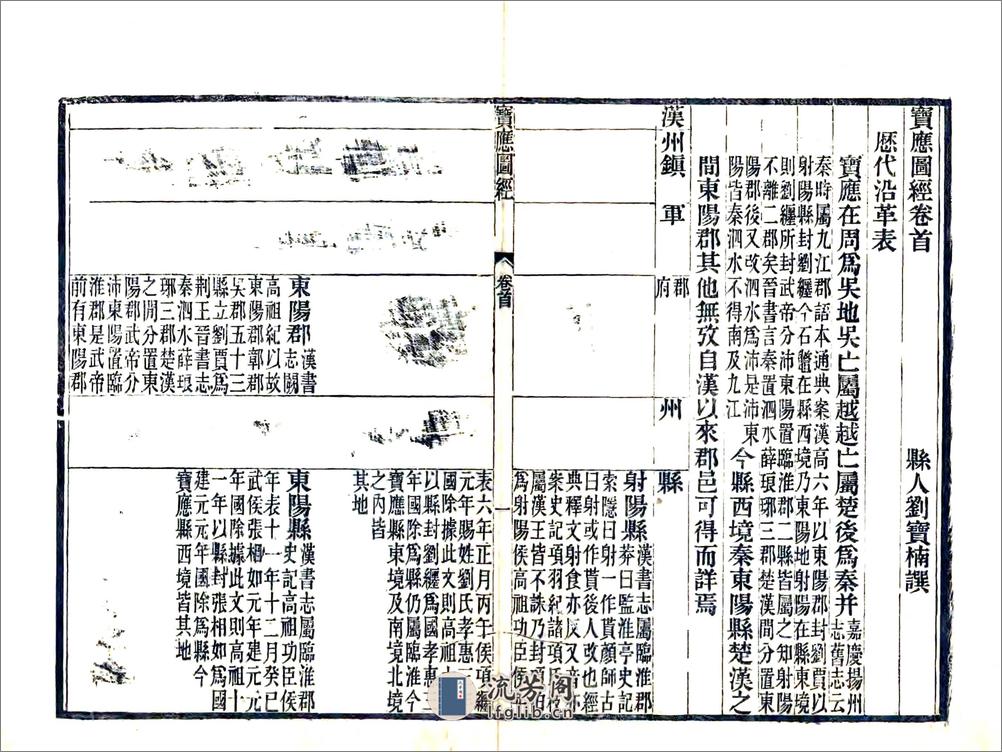 寶應圖經卷首　縣人劉寶楠譔
歴代沿革表
寶應在周爲吳地吳亡屬越越亡屬楚後爲秦并
嘉慶揚州
志舊志云
秦時屬九江郡語本通典案漢高六年以東陽郡封劉賈以
射陽縣封劉纒今石鼈在縣西境乃東陽地射陽在縣東境
則劉纒所封武帝分沛東陽置臨淮郡二縣皆屬之知射陽
不離二郡矣晉書言秦置泗水薛琅琊三郡楚漢間分置東
陽郡後又改泗水爲沛是沛東
陽皆秦泗水不得南及九江
今縣西境秦東陽縣楚漢之
間東陽郡其他無攷自漢以來郡邑可得而詳焉
漢州鎭　軍　郡府　州　縣
射陽縣
漢書志屬臨淮郡
莽曰監淮亭史記
索隱曰射一作貰顔師古
曰射或作貰後人改也經
典釋文射食亦反又音亦
案史記項羽紀諸項氏枝
屬漢王皆不誅乃封項伯
爲射陽侯高祖功臣侯
寶應圖經　卷首　一
表六年正月丙午侯項纒
元年賜姓劉氏孝惠三
國除據此文則高祖六
以縣封劉纒爲國孝惠三
年國除爲縣仍屬臨淮今
寶應縣東境及南境北境
之內皆
其地
東陽郡
漢書
志闕
高祖紀以故
東陽郡鄣郡
吳郡五十三
縣立劉賈爲
荆王晉書志
秦泗水薛琅
琊三郡楚漢
之閒分置東
陽郡武帝分
沛東陽置臨
淮郡是武帝
前有東陽郡
東陽縣
漢書志屬臨淮郡
史記高祖功臣侯
年表十一年十二月癸巳
武侯張相如元年建元元
年國除據此文則高祖十
一年以縣封張相如爲國
建元元年國除爲縣今
寶應縣西境皆其地
流芳閣
lfglib.cn